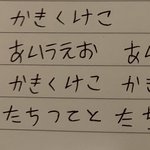 かきくけこ
あいうえお あ
かきくけこ か
たちつてと たち